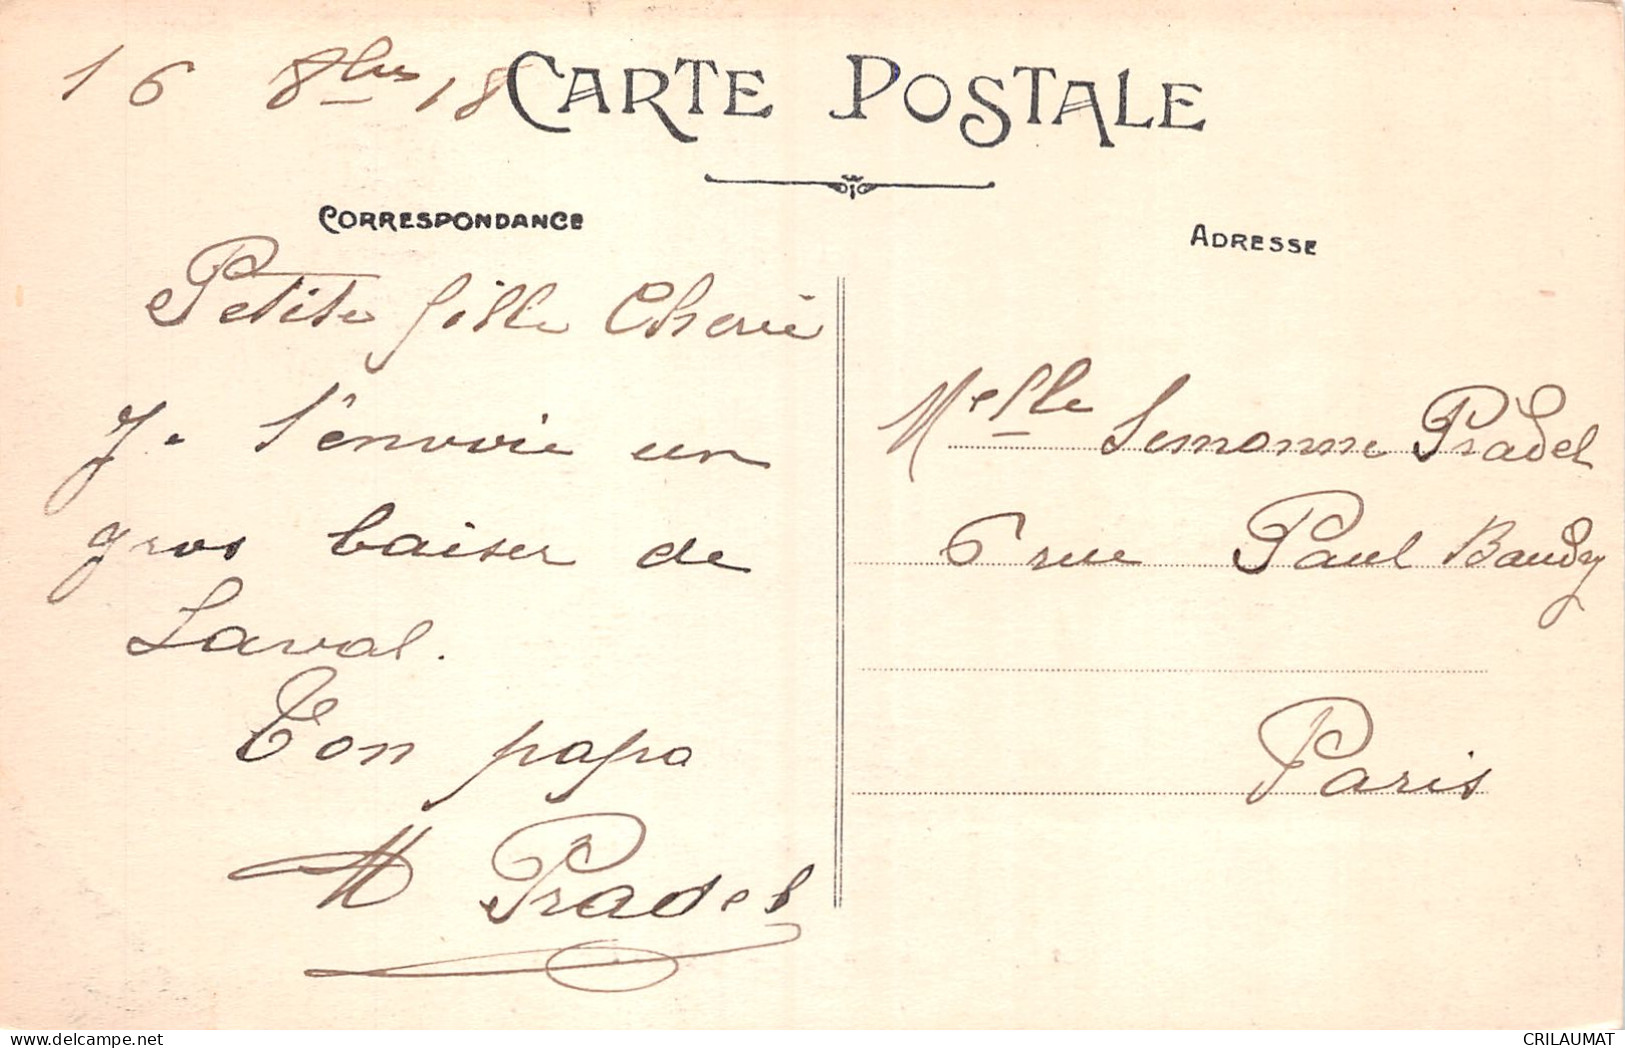 16 8bre 18
CARTE POSTALE
CORRESPONDANCE
Petite fille Cherie
Je t'envoie un
gros baiser de
Laval.
Ton papa
M Pradel
ADRESSE
Melle Semonne Pradel
6 rue Paul Baudry
Paris
CRILAUMAT